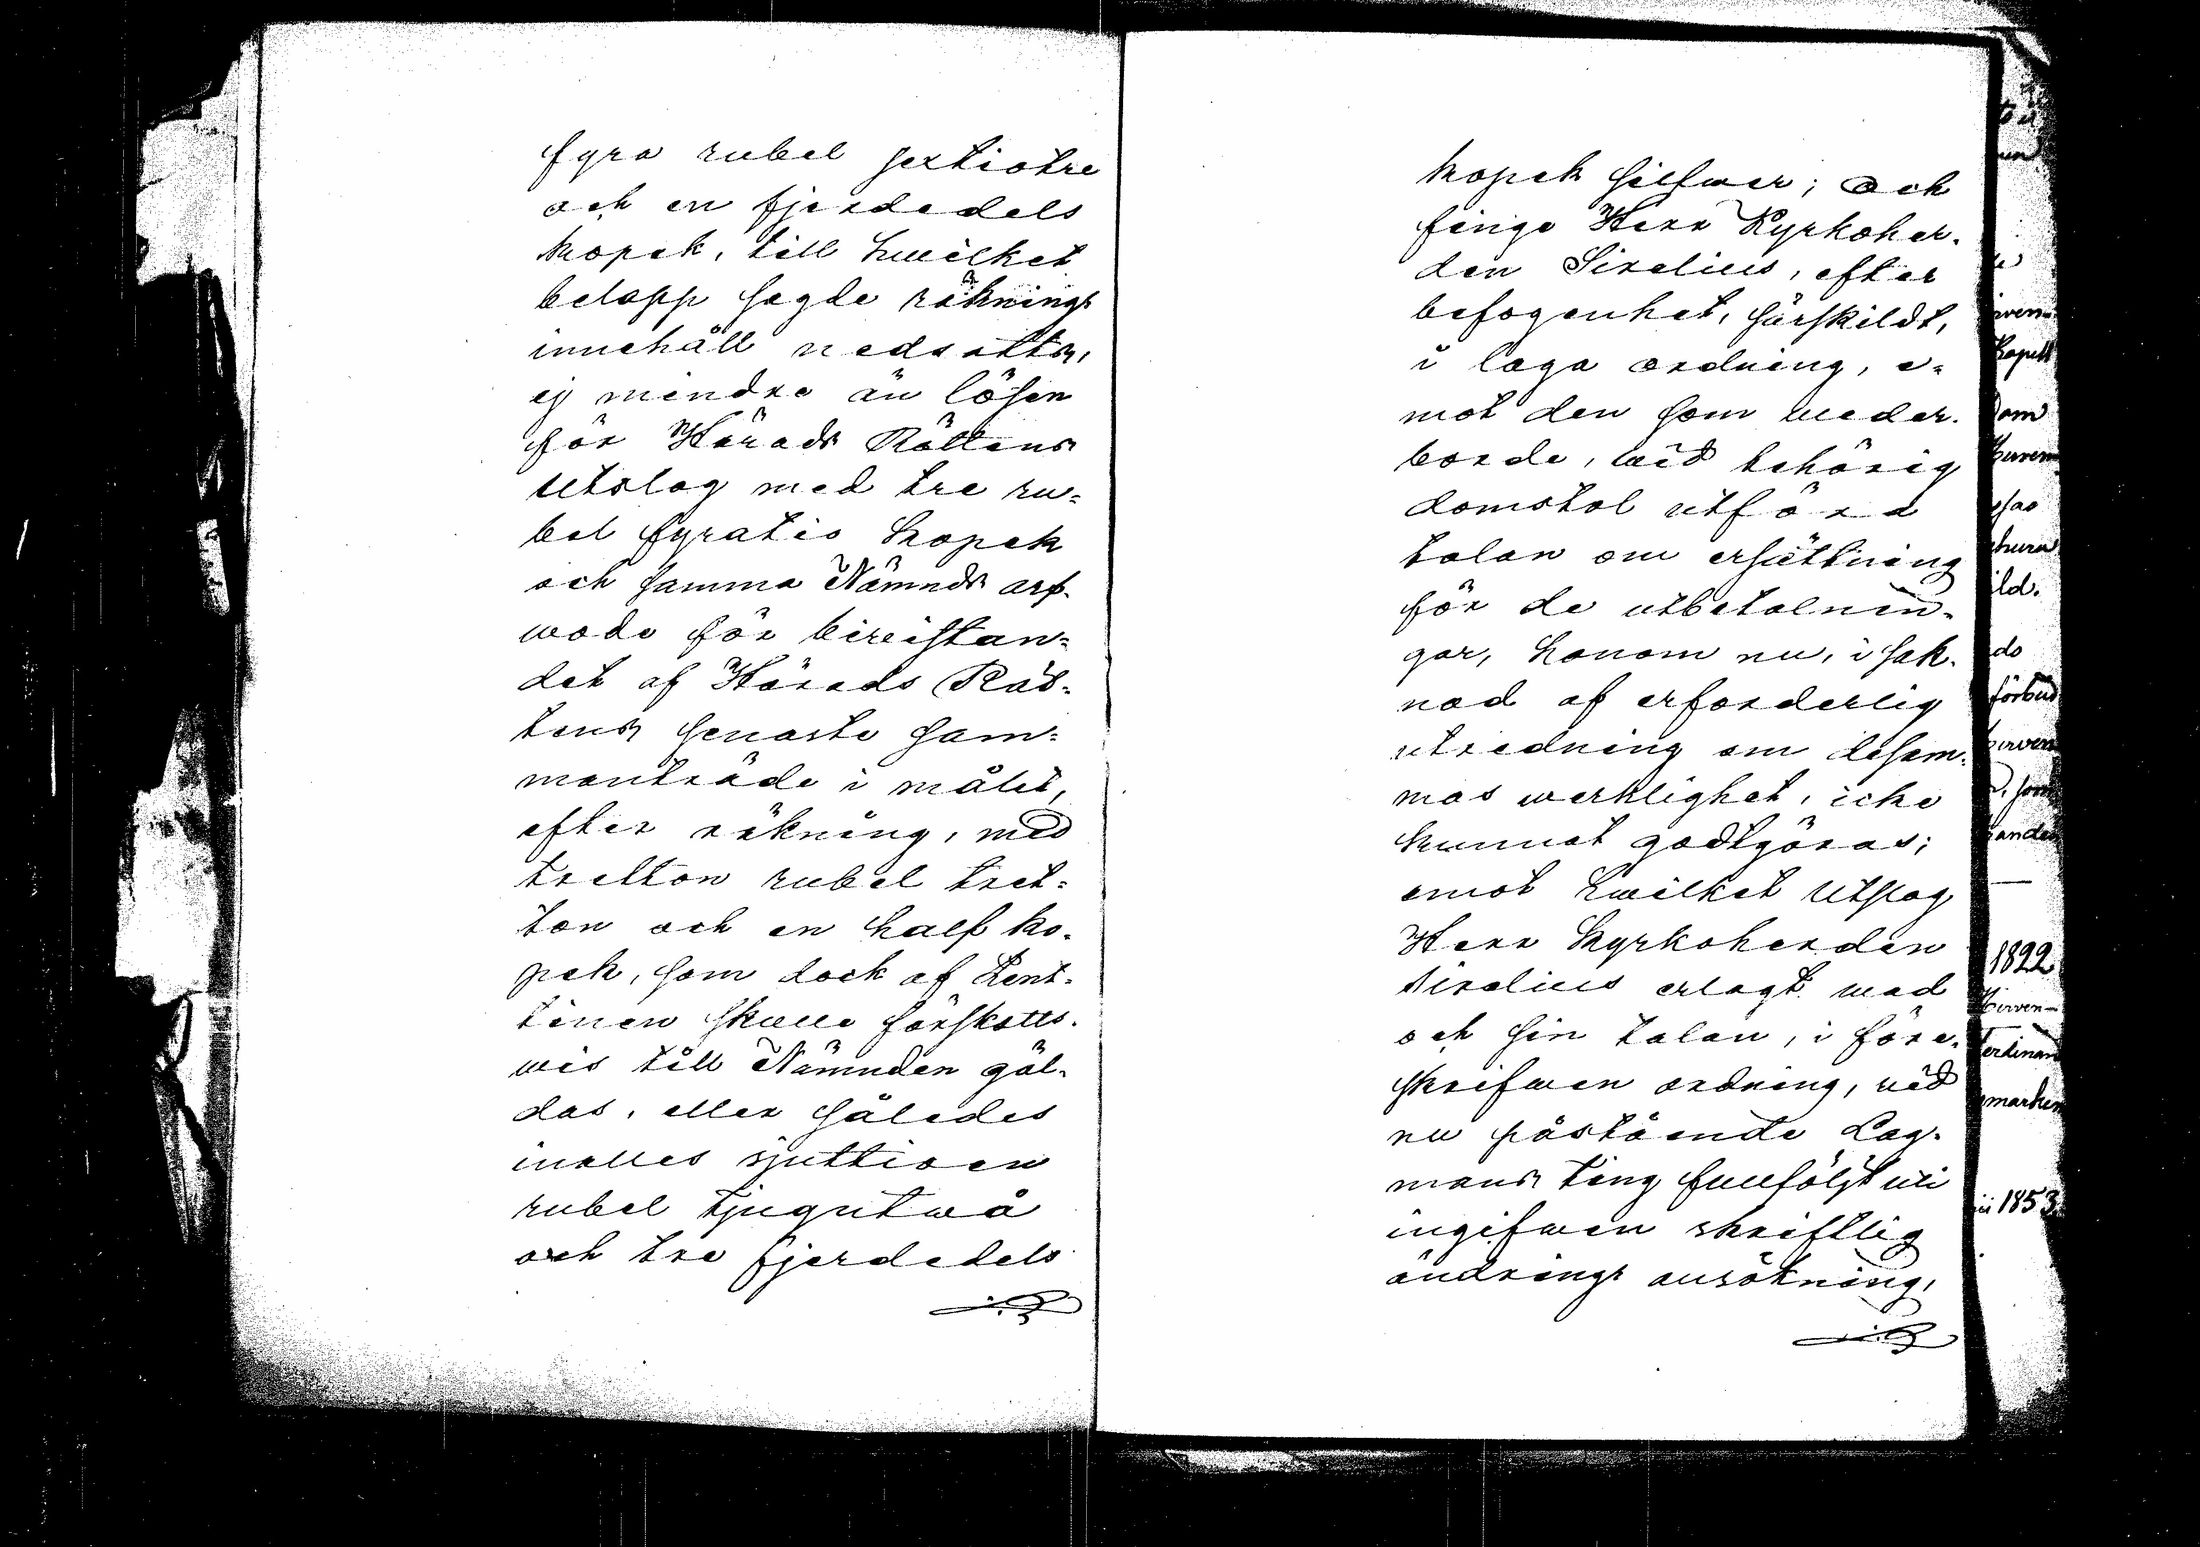 fyra rubel sextiotre
och en fjerdedels
kopek, till hwilket
belopp sagde räknings
innehåll nedsatts,
ej mindre än lösen
för Härads Rättens
Utslag med tre ru-
bel fyratio kopek
och samma Nämnds arf-
wode för biwistan-
det af Härads Rät-
tens senaste sam-
manträde i målet,
efter räkning, med
tretton rubel tret-
ton och en half ko-
pek, som dock af Lent-
tinen skulle förskotts-
wis till Nämnden gäl-
das, eller således
inalles sjuttioen
rubel tjugutwå
och tre fjerdedels
kopek silfwer; och
finge Herr Kyrkoher-
den Sirelius, efter
befogenhet, särskildt,
i laga ordning, e-
mot den som weder-
borde, wid behörig
domstol utföra
talan om ersättning
för de utbetalnin-
gar, honom nu, i sak-
nad af erforderlig
utredning om desam-
mas werklighet, icke
kunnat godtgöras;
emot hwilket Utslag
Herr Kyrkoherden
Sirelius erlagt wad
och sin talan, i före-
skrifwen ordning, wid
nu påstående Lag-
mans ting fullföljt uti
ingifwen skriftlig
ändrings ansökning,
1822
Hirven-
Ferdinand
1853